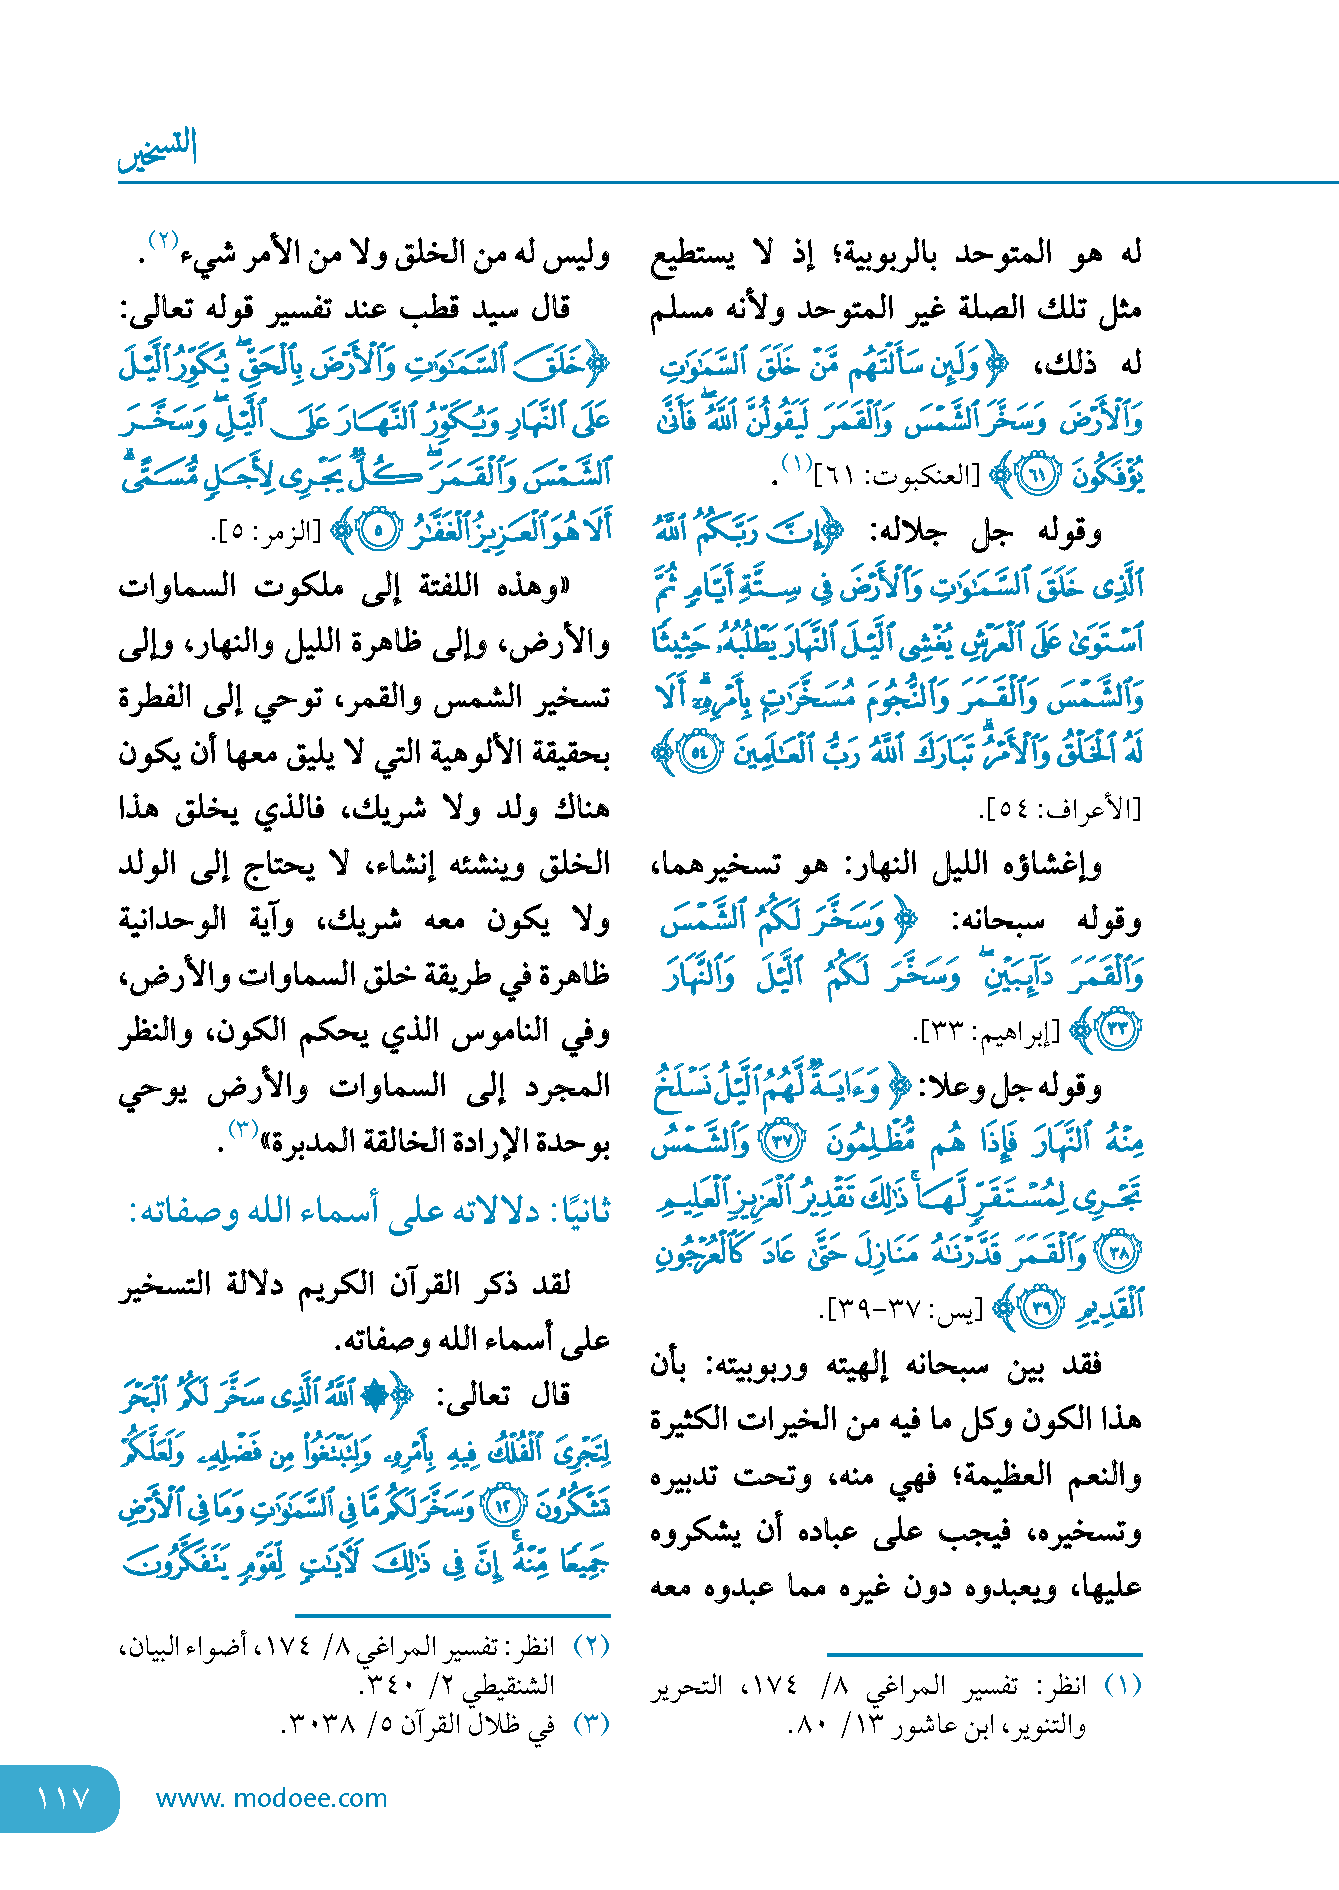 التسخير
له هو المتوحد بالربوبية؛ إذ لا يستطيع
مثل تلك الصلة غير المتوحد ولأنه مسلم
له ذلك، ﴿وَلَئِن سَأَلْتَهُم مَّنْ خَلَقَ السَّمَٰوَٰتِ
وَالْأَرْضَ وَسَخَّرَ الشَّمْسَ وَالْقَمَرَ لَيَقُولُنَّ اللَّهُ ۖ فَأَنَّىٰ
يُؤْفَكُونَ ٦١﴾ [العنكبوت: ٦١](١).
وقوله جل جلاله: ﴿إِنَّ رَبَّكُمُ اللَّهُ
الَّذِى خَلَقَ السَّمَٰوَٰتِ وَالْأَرْضَ فِى سِتَّةِ أَيَّامٍ ثُمَّ
اسْتَوَىٰ عَلَى الْعَرْشِ يُغْشِى الَّيْلَ النَّهَارَ يَطْلُبُهُۥ حَثِيثًا
وَالشَّمْسَ وَالْقَمَرَ وَالنُّجُومَ مُسَخَّرَٰتٍۭ بِأَمْرِهِۦٓ ۗ أَلَا
لَهُ الْخَلْقُ وَالْأَمْرُ ۗ تَبَارَكَ اللَّهُ رَبُّ الْعَٰلَمِينَ ٥٤﴾
[الأعراف: ٥٤].
وإغشاؤه الليل النهار: هو تسخيرهما،
وقوله سبحانه: ﴿وَسَخَّرَ لَكُمُ الشَّمْسَ
وَالْقَمَرَ دَآئِبَيْنِ ۖ وَسَخَّرَ لَكُمُ الَّيْلَ وَالنَّهَارَ
٣٣﴾ [إبراهيم: ٣٣].
وقوله جل وعلا: ﴿وَءَايَةٌ لَّهُمُ الَّيْلُ نَسْلَخُ
مِنْهُ النَّهَارَ فَإِذَا هُم مُّظْلِمُونَ ٣٧ وَالشَّمْسُ
تَجْرِى لِمُسْتَقَرٍّ لَّهَا ۚ ذَٰلِكَ تَقْدِيرُ الْعَزِيزِ الْعَلِيمِ
٣٨ وَالْقَمَرَ قَدَّرْنَٰهُ مَنَازِلَ حَتَّىٰ عَادَ كَالْعُرْجُونِ
الْقَدِيمِ ٣٩﴾ [يس: ٣٧-٣٩].
فقد بين سبحانه إلهيته وربوبيته: بأن
هذا الكون وكل ما فيه من الخيرات الكثيرة
والنعم العظيمة؛ فهي منه، وتحت تدبيره
وتسخيره، فيجب على عباده أن يشكروه
عليها، ويعبدوه دون غيره مما عبدوه معه
(١) انظر: تفسير المراغي ٨/ ١٧٤، التحرير
والتنوير، ابن عاشور ١٣/ ٨٠.
وليس له من الخلق ولا من الأمر شيء(٢).
قال سيد قطب عند تفسير قوله تعالى:
﴿خَلَقَ السَّمَٰوَٰتِ وَالْأَرْضَ بِالْحَقِّ ۖ يُكَوِّرُ الَّيْلَ
عَلَى النَّهَارِ وَيُكَوِّرُ النَّهَارَ عَلَى الَّيْلِ ۖ وَسَخَّرَ
الشَّمْسَ وَالْقَمَرَ ۖ كُلٌّ يَجْرِى لِأَجَلٍ مُّسَمًّى ۗ
أَلَا هُوَ الْعَزِيزُ الْغَفَّٰرُ ٥﴾ [الزمر: ٥].
«وهذه اللفتة إلى ملكوت السماوات
والأرض، وإلى ظاهرة الليل والنهار، وإلى
تسخير الشمس والقمر، توحي إلى الفطرة
بحقيقة الألوهية التي لا يليق معها أن يكون
هناك ولد ولا شريك، فالذي يخلق هذا
الخلق وينشئه إنشاء، لا يحتاج إلى الولد
ولا يكون معه شريك، وآية الوحدانية
ظاهرة في طريقة خلق السماوات والأرض،
وفي الناموس الذي يحكم الكون، والنظر
المجرد إلى السماوات والأرض يوحي
بوحدة الإرادة الخالقة المدبرة»(٣).
ثانيًا: دلالاته على أسماء الله وصفاته:
لقد ذكر القرآن الكريم دلالة التسخير
على أسماء الله وصفاته.
قال تعالى: ﴿۞ اللَّهُ الَّذِى سَخَّرَ لَكُمُ الْبَحْرَ
لِتَجْرِىَ الْفُلْكُ فِيهِ بِأَمْرِهِۦ وَلِتَبْتَغُوا۟ مِن فَضْلِهِۦ وَلَعَلَّكُمْ
تَشْكُرُونَ ١٢ وَسَخَّرَ لَكُم مَّا فِى السَّمَٰوَٰتِ وَمَا فِى الْأَرْضِ
جَمِيعًا مِّنْهُ ۚ إِنَّ فِى ذَٰلِكَ لَأٓيَٰتٍ لِّقَوْمٍ يَتَفَكَّرُونَ
(٢) انظر: تفسير المراغي ٨/ ١٧٤، أضواء البيان،
الشنقيطي ٢/ ٣٤٠.
(٣) في ظلال القرآن ٥/ ٣٠٣٨.
١١٧
www. modoee.com